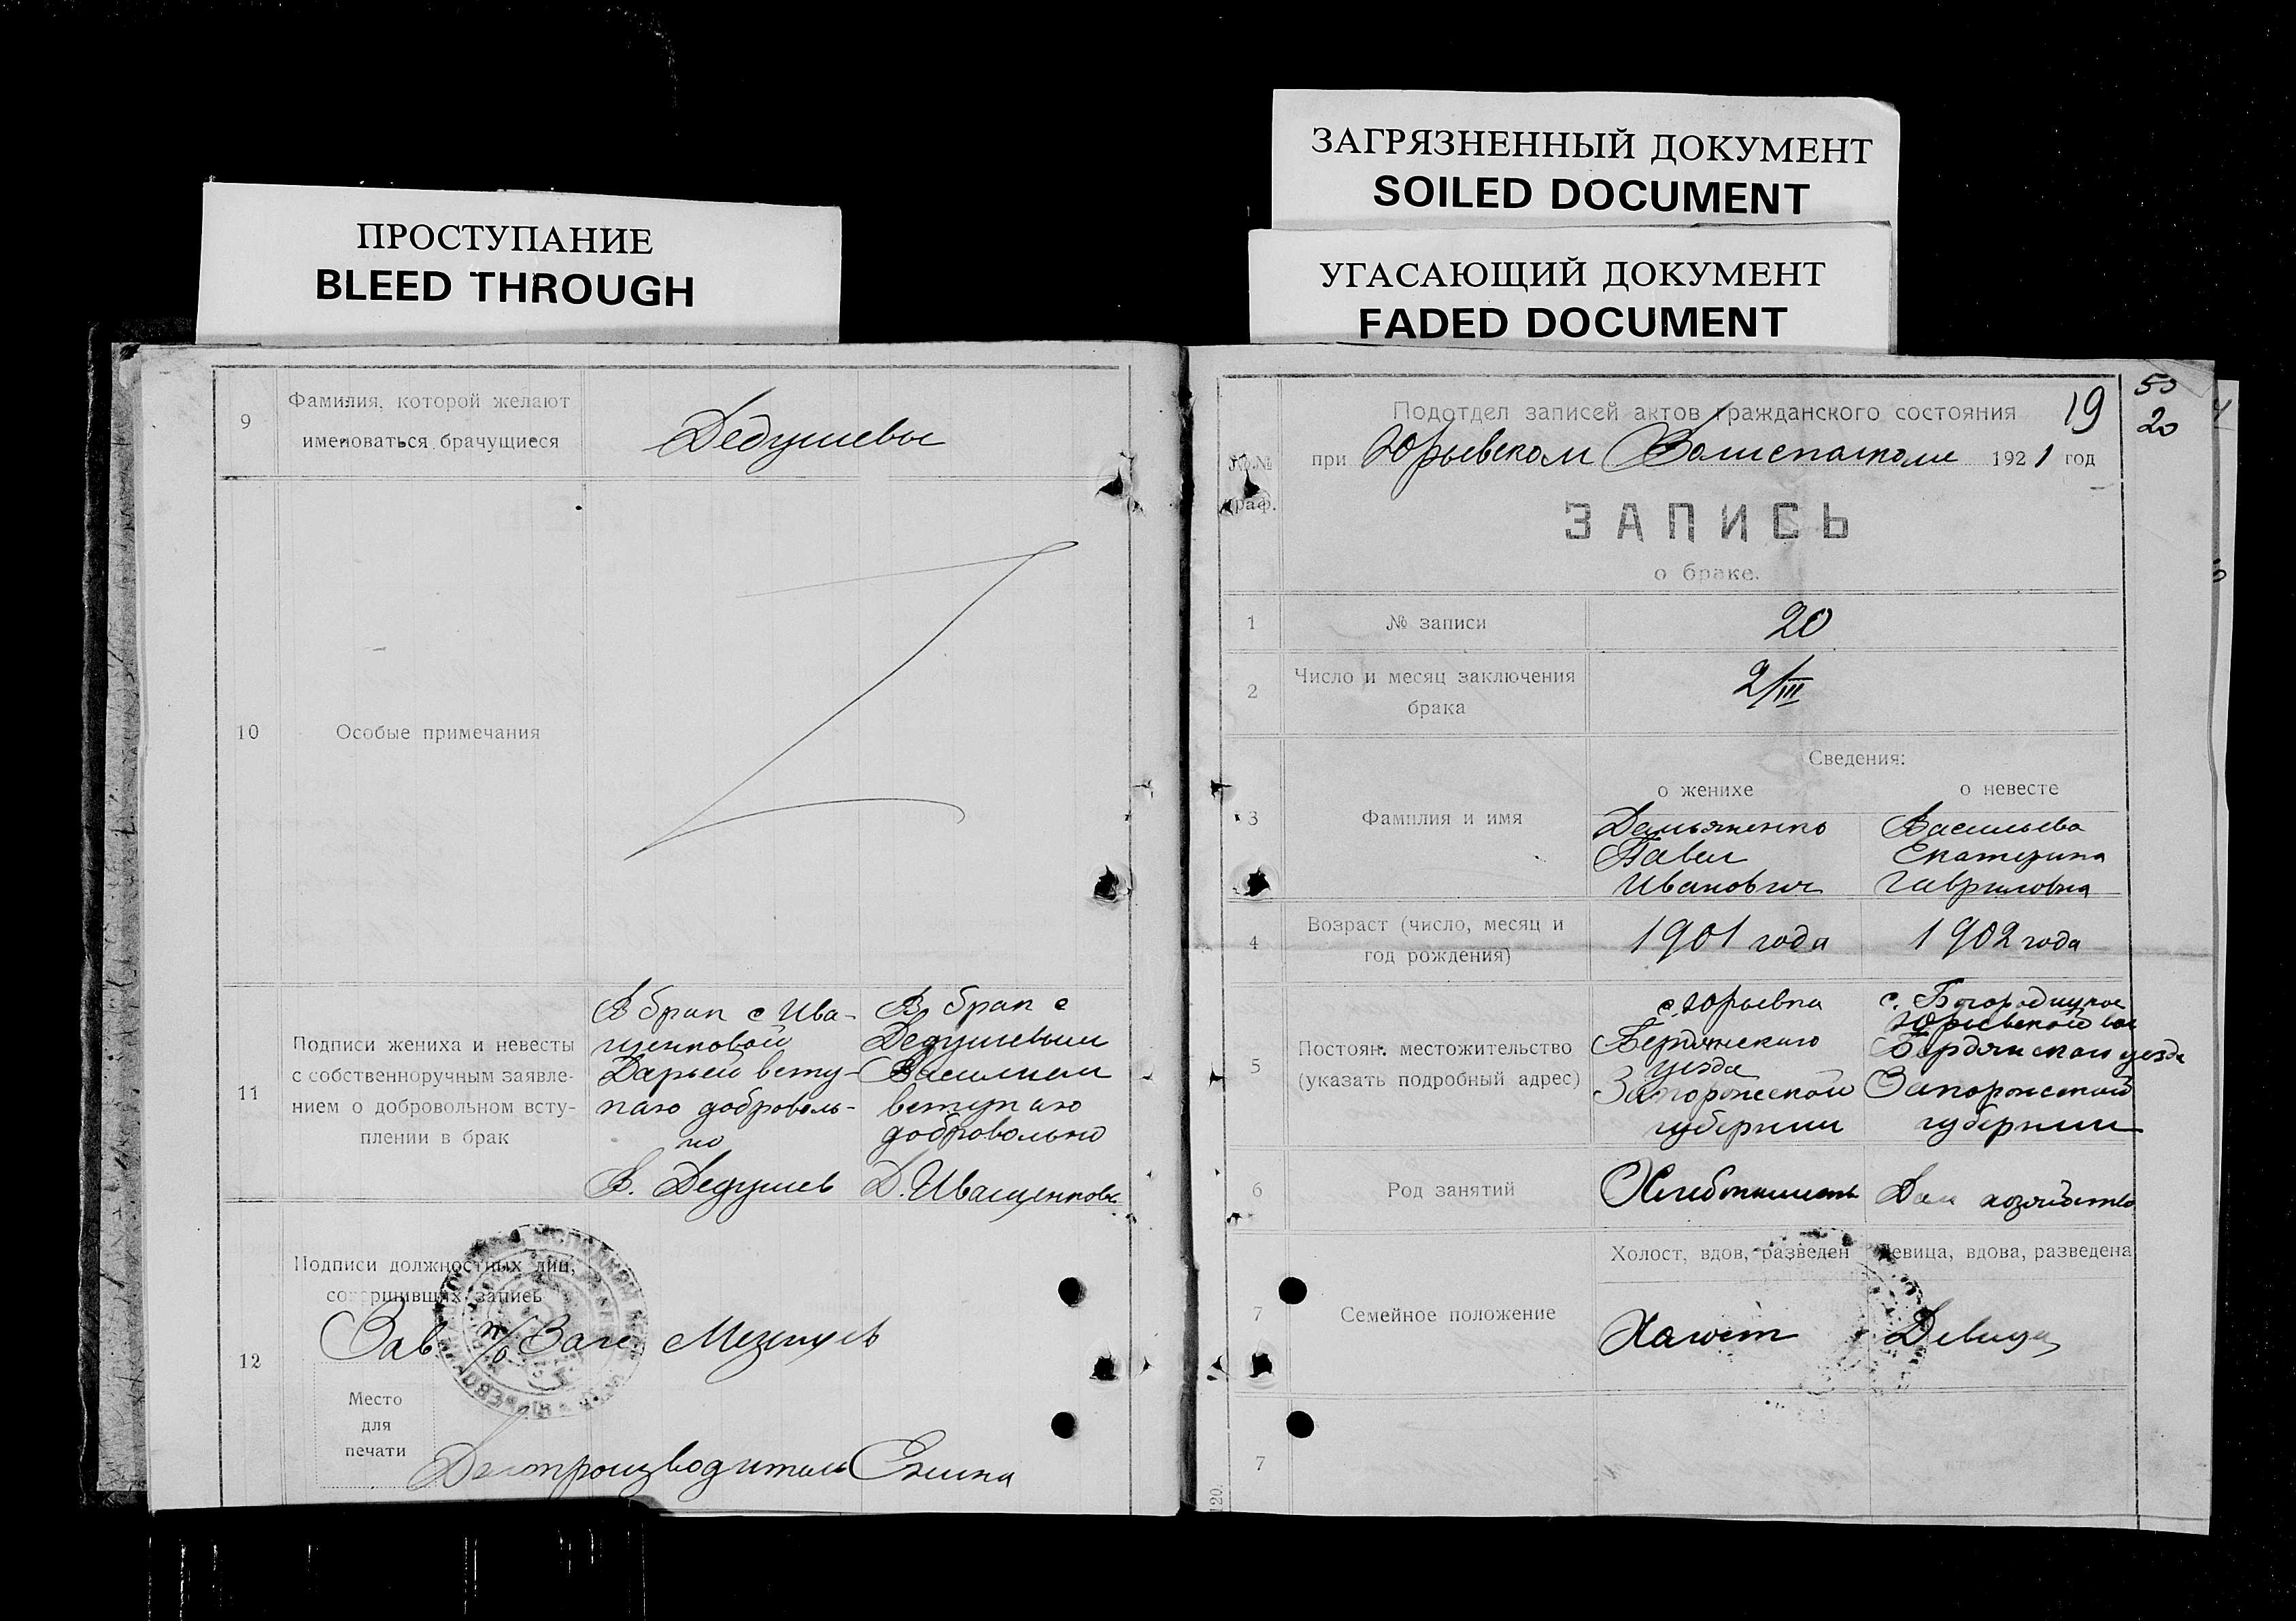 ПРОСТУПАНИЕ
BLEED THROUGH
ЗАГРЯЗНЕННЫЙ ДОКУМЕНТ
SOILED DOCUMENT
УГАСАЮЩИЙ ДОКУМЕНТ
FADED DOCUMENT
9
Фамилия, которой желают
именоваться брачущиеся
Дедушевы
10
Особые примечания
11
Подписи жениха и невесты
с собственноручным заявле-
нием о добровольном всту-
плении в брак
В брак с Ива-
щенковой
Дарьей всту-
паю доброволь-
но
В. Дедушев
В брак с
Дедушевым
Василием
вступаю
добровольно
Д. Иващенкова
12
Подписи должностных лиц,
совершивших запись
Зав. п/о Загс
Место
для
печати
Делопроизводитель
50
19
20
Подотдел записей актов гражданского состояния
при Юрьевском Волисполкоме 1921 год
№№
граф.
ЗАПИСЬ
о браке.
1
№ записи
20
2
Число и месяц заключения
брака
2/III
Сведения:
о женихе
о невесте
3
Фамилия и имя
Демьяненко
Павел
Иванович
Васильева
Екатерина
Гавриловна
4
Возраст (число, месяц и
год рождения)
1901 года
1902 года
5
Постоян. местожительство
(указать подробный адрес)
с. Юрьевка
Бердянского
уезда
Запорожской
губернии
с. Богородицкое
Юрьевской вол
Бердянского уезда
Запорожской
губернии
6
Род занятий
Хлебопашець
Дом хозяйство
7
Семейное положение
Холост, вдов, разведен
Девица, вдова, разведена
Холост
Девица
7
120.